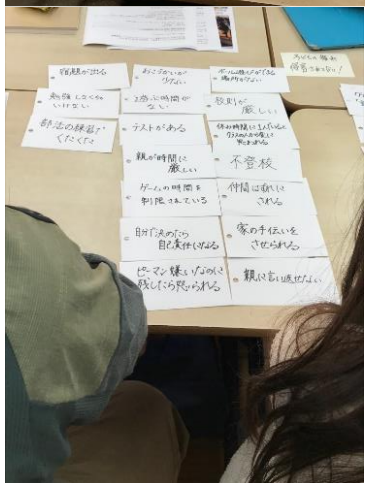 宿題が出る
勉強しなくちゃ
いけない
部活の練習で
くたくた
おこづかいが
少ない
遊ぶ時間が
ない
テストがある
親が時間に
厳しい
ゲームの時間を
制限されている
自分で決めたら
自己責任になる
ピーマン嫌いなのに
残したら怒られる
ボール遊びができる
場所が少ない
校則が
厳しい
休み時間に1人でいると
不登校
仲間はずれに
される
家の手伝いを
させられる
親に言い返せない